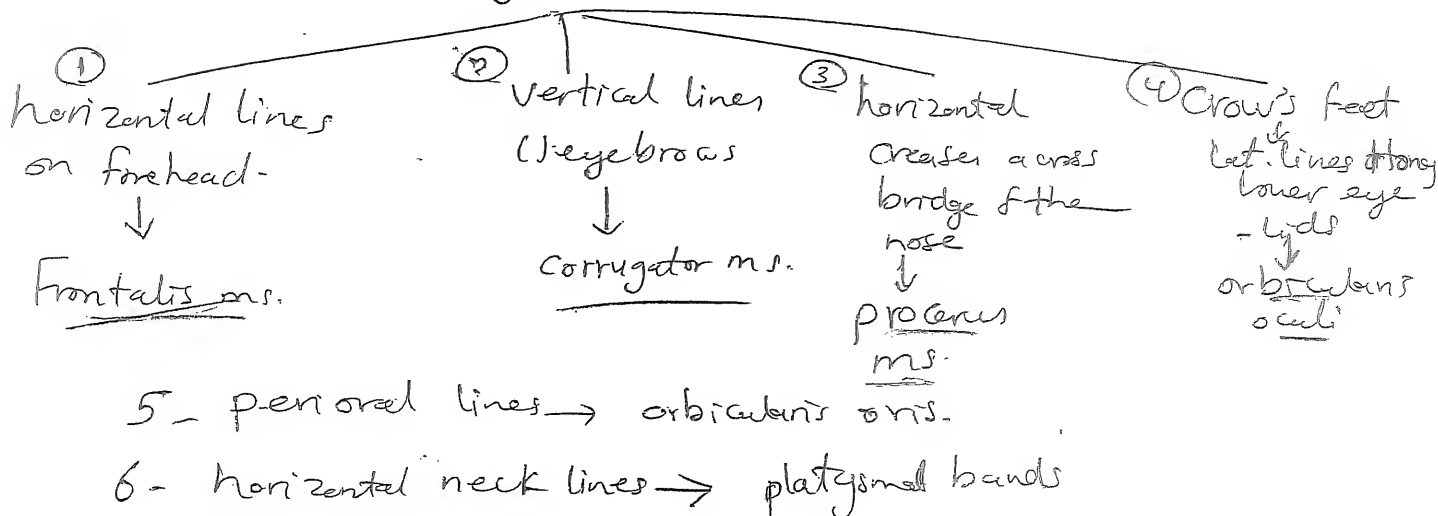 ①
horizental lines
on forehead-
↓
Frontalis ms.
②
vertical lines
()eyebrows
↓
corrugator ms.
③
horizontal
creases across
bridge of the
nose
↓
procerus
ms.
④ Crow's feet
↓
Lat. lines
lower eye
- lids
↓
orbicularis
oculi
5- perioral lines → orbicularis oris.
6- horizental neck lines → platysmal bands